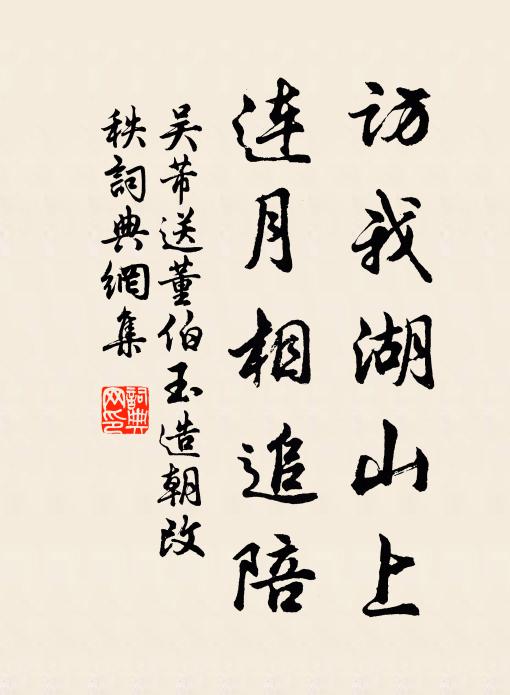 訪我湖山上
連月相追陪
吳芾送董伯玉造朝改
秩詞典網集
詞典
网印